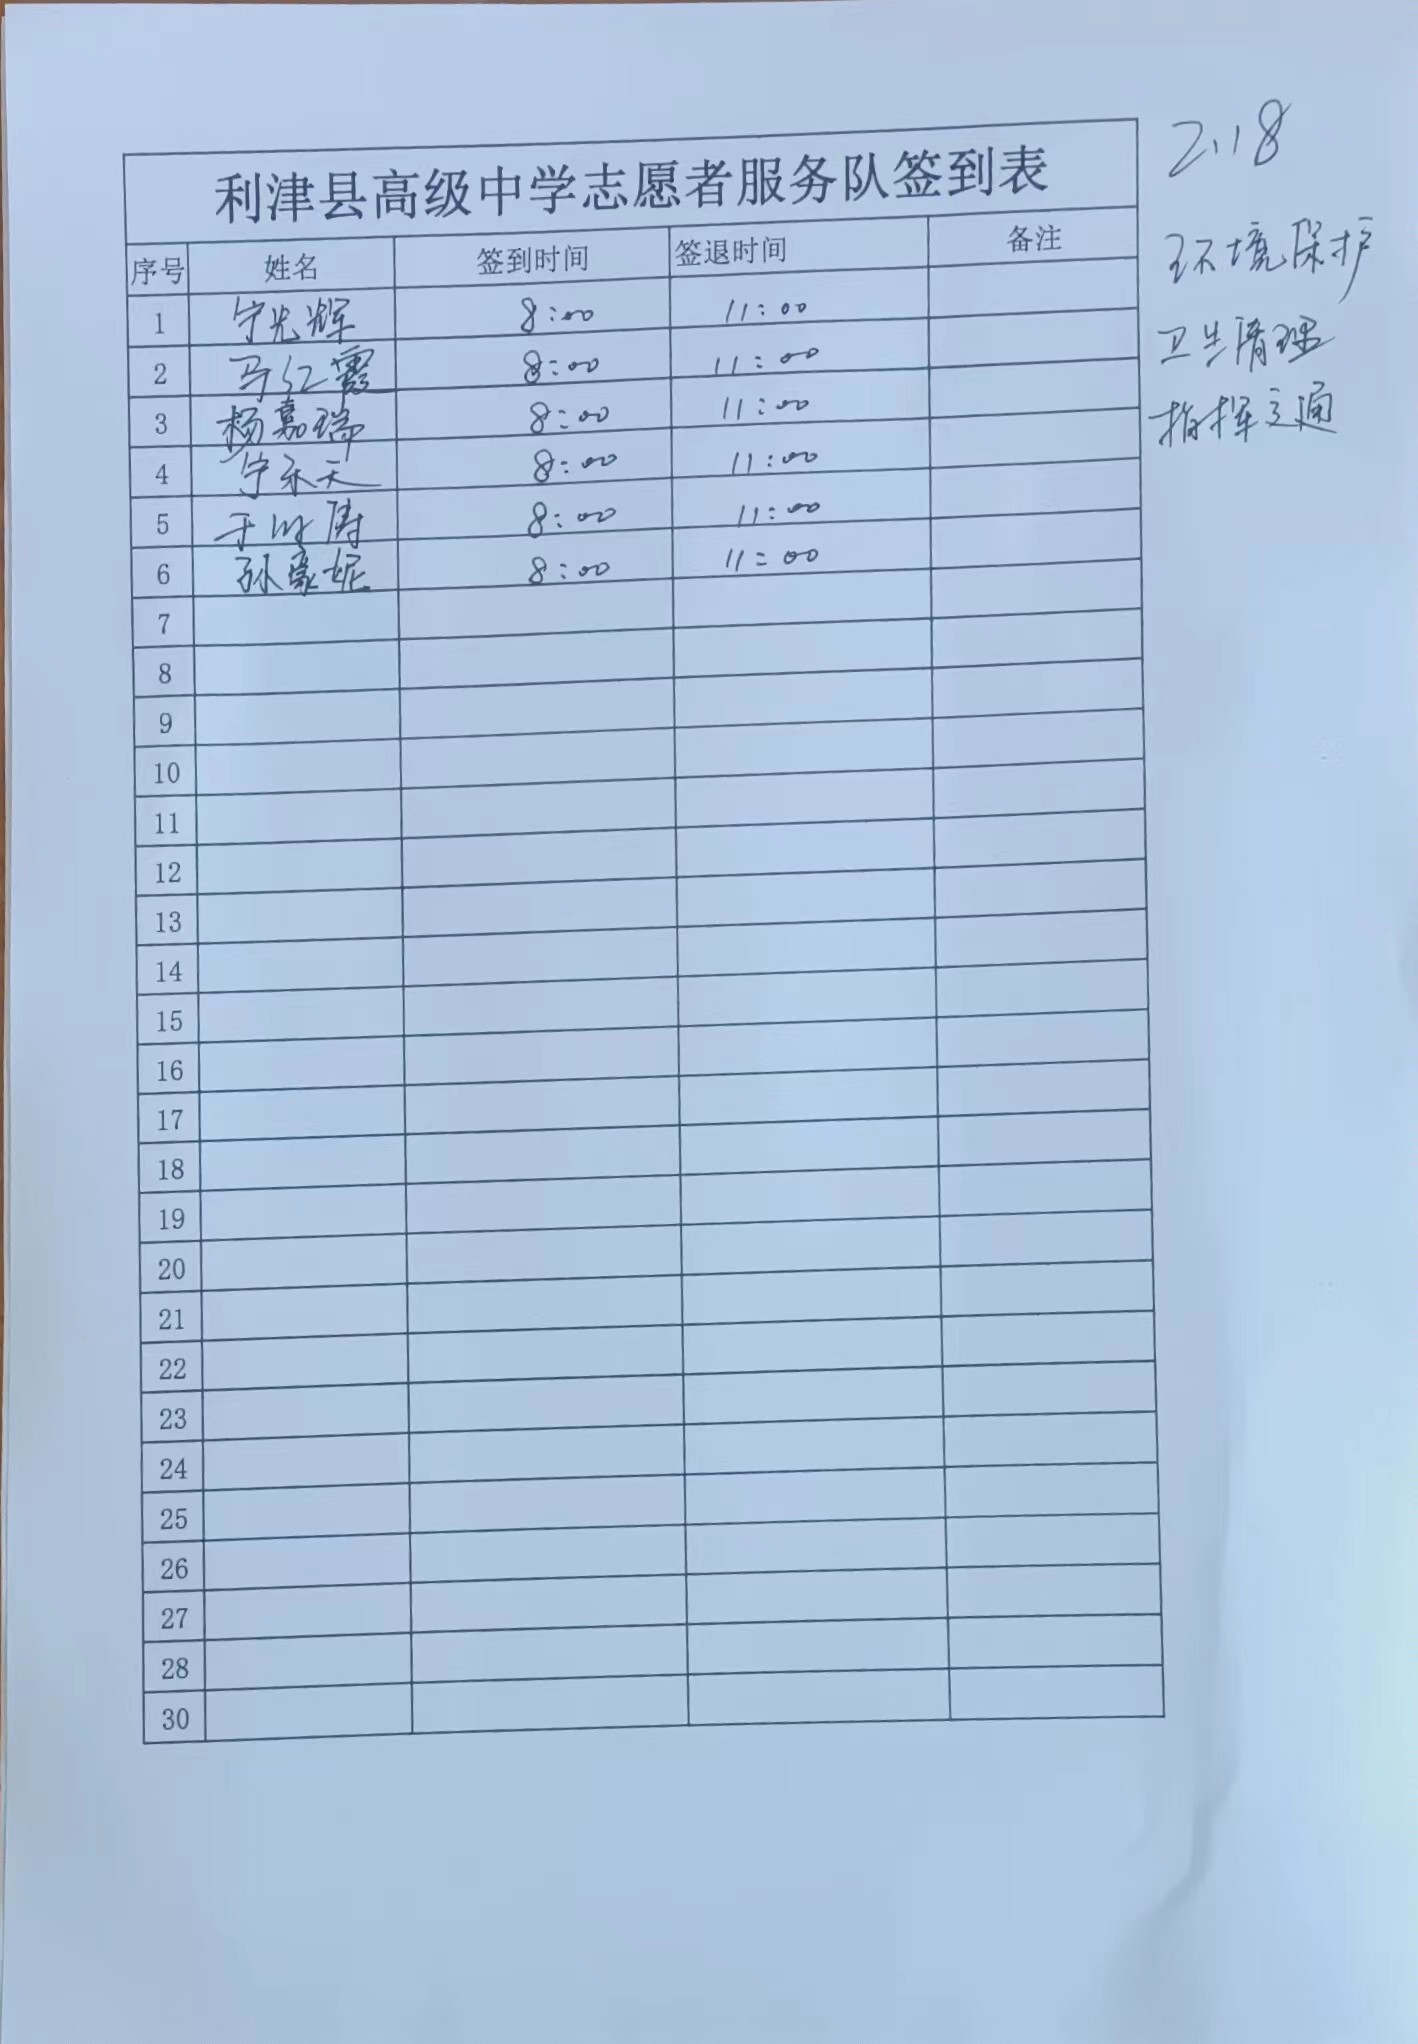 2.18
利津县高级中学志愿者服务队签到表
环境保护
卫生清理
指挥交通
序号 姓名 签到时间 签退时间 备注
1 宁光辉 8:00 11:00
2 马红霞 8:00 11:00
3 杨嘉瑞 8:00 11:00
4 宁永天 8:00 11:00
5 于 涛 8:00 11:00
6 孙蒙妮 8:00 11:00
7
8
9
10
11
12
13
14
15
16
17
18
19
20
21
22
23
24
25
26
27
28
30